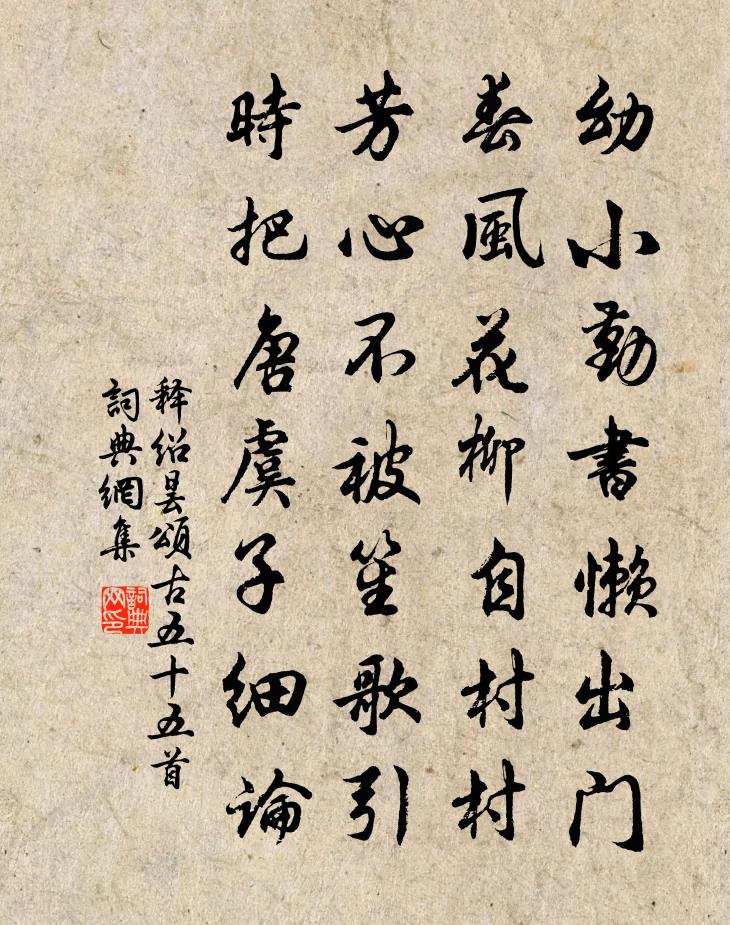 幼小勤書懶出門
春風花柳自村村
芳心不被笙歌引
時把唐虞子細論
释绍昙頌古五十五首
詞典網集
詞典网印